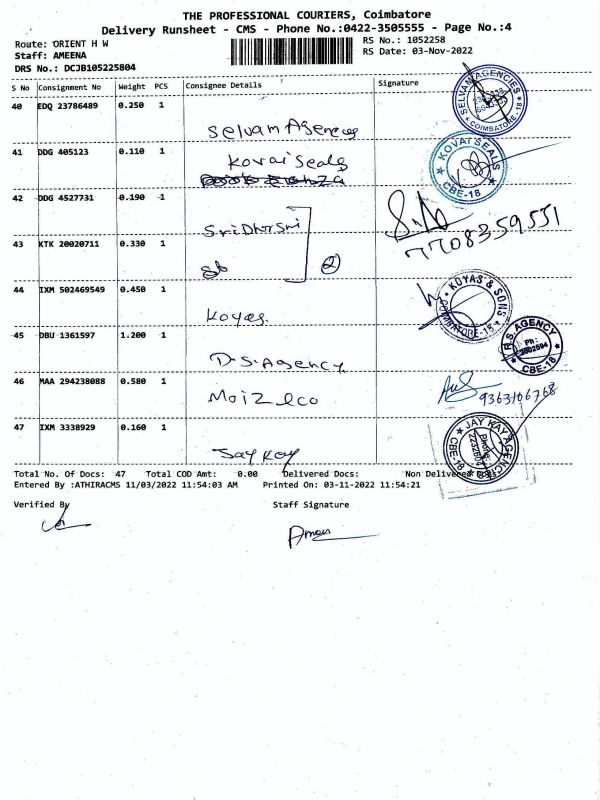 THE PROFESSIONAL COURIERS, Coimbatore
Delivery Runsheet - CMS - Phone No.:0422-3505555 - Page No.:4
Route: ORIENT H W
RS No.: 1052258
Staff: AMEENA
RS Date: 03-Nov-2022
DRS No.: DCJB105225804
S No Consignment No Weight PCS Consignee Details Signature
40 EDQ 23786489 0.250 1
Selvam Agencies
SELVAM AGENCIES COIMBATORE-18
41 DDG 405123 0.110 1
Kovai Seals
KOVAI SEALS CBE-18
42 DDG 4527731 0.190 1
Sri Dhar Sri
7708359551
43 KTK 20020711 0.330 1
2
44 IXM 502469549 0.450 1
Koyas.
KOYAS & SONS COIMBATORE-18
45 DBU 1361597 1.200 1
D.S.Agency
R.S. AGENCY Ph : CBE-18
46 MAA 294238088 0.580 1
Moiz & co
9363106768
47 IXM 3338929 0.160 1
Jay Kay
JAY KAY AGENCY Phone CBE-18
Total No. Of Docs: 47 Total COD Amt: 0.00 Delivered Docs: Non Delivered Docs:
Entered By :ATHIRACMS 11/03/2022 11:54:03 AM Printed On: 03-11-2022 11:54:21
Verified By Staff Signature